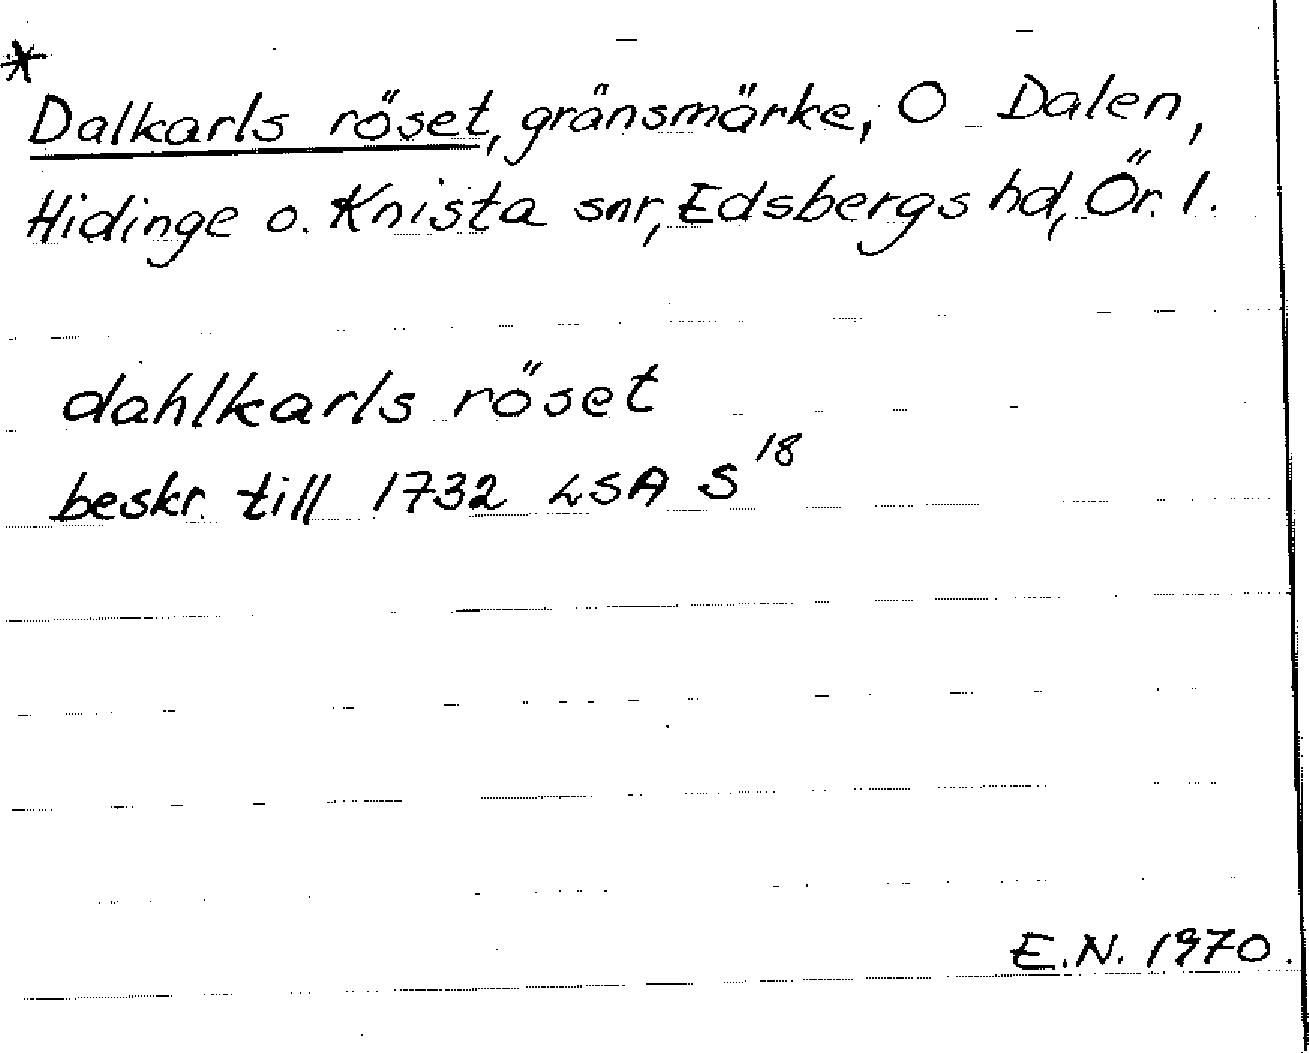 *
Dalkarls röset, gränsmärke, O Dalen,
Hidinge o. Knista snr, Edsbergs hd, Ör. l.
dahlkarls röset
beskr. till 1732 LSA S 18
E.N. 1970.